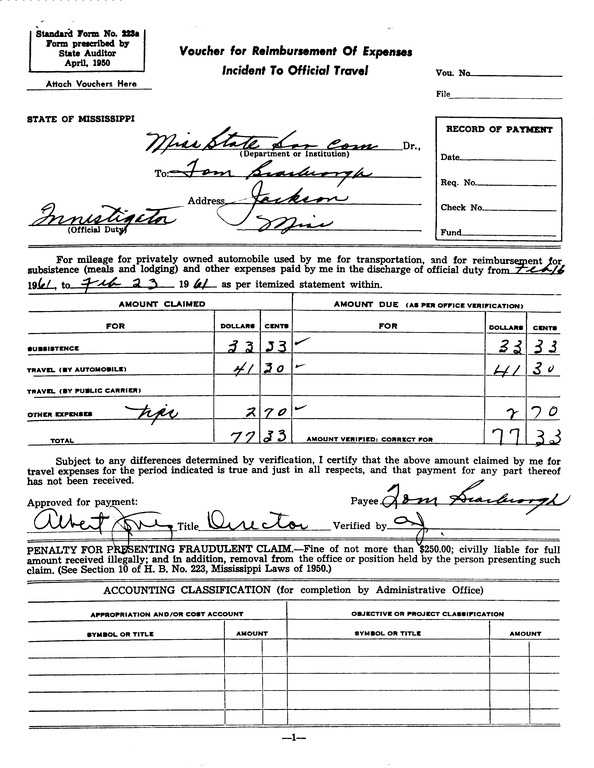 Standard Form No. 223a
Form prescribed by
State Auditor
April, 1950
Attach Vouchers Here
Voucher for Reimbursement Of Expenses
Incident To Official Travel
Vou. No.
File
STATE OF MISSISSIPPI
Miss State Sov Com Dr.,
(Department or Institution)
To: Tom Scarbrough
Address Jackson
Miss
Investigator
(Official Duty)
RECORD OF PAYMENT
Date
Req. No.
Check No.
Fund
For mileage for privately owned automobile used by me for transportation, and for reimbursement for
subsistence (meals and lodging) and other expenses paid by me in the discharge of official duty from Feb 16
1961, to Feb 23 1961 as per itemized statement within.
AMOUNT CLAIMED AMOUNT DUE (AS PER OFFICE VERIFICATION)
FOR DOLLARS CENTS FOR DOLLARS CENTS
SUBSISTENCE 33 33 ✓ 33 33
TRAVEL (BY AUTOMOBILE) 41 30 ✓ 41 30
TRAVEL (BY PUBLIC CARRIER)
OTHER EXPENSES tips 2 70 ✓ 2 70
TOTAL 77 33 AMOUNT VERIFIED: CORRECT FOR 77 33
Subject to any differences determined by verification, I certify that the above amount claimed by me for
travel expenses for the period indicated is true and just in all respects, and that payment for any part thereof
has not been received.
Approved for payment: Payee Tom Scarbrough
Albert Jones Title Director Verified by
PENALTY FOR PRESENTING FRAUDULENT CLAIM.—Fine of not more than $250.00; civilly liable for full
amount received illegally; and in addition, removal from the office or position held by the person presenting such
claim. (See Section 10 of H. B. No. 223, Mississippi Laws of 1950.)
ACCOUNTING CLASSIFICATION (for completion by Administrative Office)
APPROPRIATION AND/OR COST ACCOUNT OBJECTIVE OR PROJECT CLASSIFICATION
SYMBOL OR TITLE AMOUNT SYMBOL OR TITLE AMOUNT
—1—